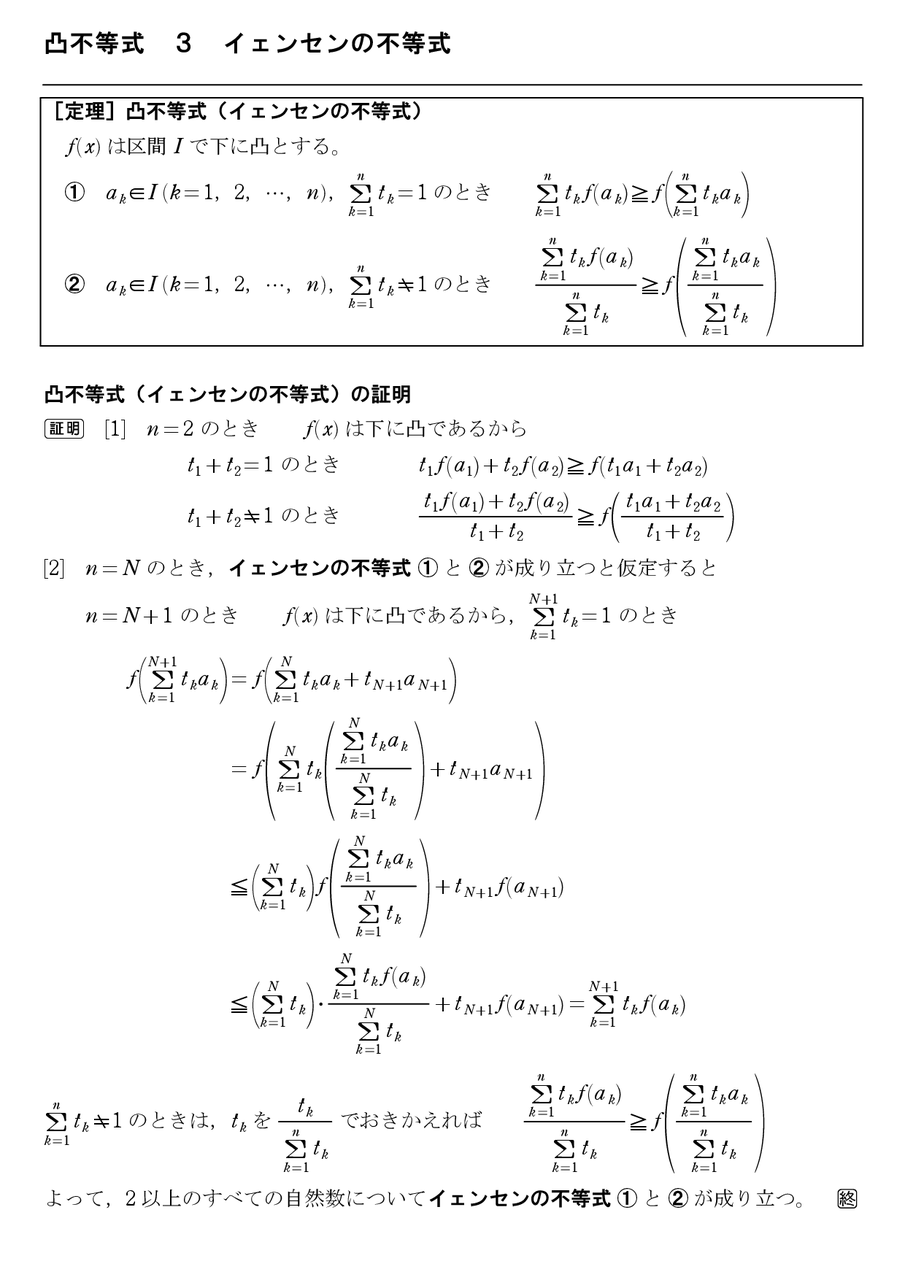 凸不等式　３　イェンセンの不等式
［定理］凸不等式（イェンセンの不等式）
f(x) は区間 I で下に凸とする。
① a_k∈I (k=1，2，…，n)，\sum_{k=1}^{n} t_k=1 のとき　\sum_{k=1}^{n} t_k f(a_k)≧f(\sum_{k=1}^{n} t_k a_k)
② a_k∈I (k=1，2，…，n)，\sum_{k=1}^{n} t_k≠1 のとき　\frac{\sum_{k=1}^{n} t_k f(a_k)}{\sum_{k=1}^{n} t_k}≧f(\frac{\sum_{k=1}^{n} t_k a_k}{\sum_{k=1}^{n} t_k})
凸不等式（イェンセンの不等式）の証明
証明 [1] n=2 のとき　f(x) は下に凸であるから
t_1+t_2=1 のとき　t_1 f(a_1)+t_2 f(a_2)≧f(t_1 a_1+t_2 a_2)
t_1+t_2≠1 のとき　\frac{t_1 f(a_1)+t_2 f(a_2)}{t_1+t_2}≧f(\frac{t_1 a_1+t_2 a_2}{t_1+t_2})
[2] n=N のとき，イェンセンの不等式 ① と ② が成り立つと仮定すると
n=N+1 のとき　f(x) は下に凸であるから，\sum_{k=1}^{N+1} t_k=1 のとき
f(\sum_{k=1}^{N+1} t_k a_k)=f(\sum_{k=1}^{N} t_k a_k+t_{N+1} a_{N+1})
=f(\sum_{k=1}^{N} t_k(\frac{\sum_{k=1}^{N} t_k a_k}{\sum_{k=1}^{N} t_k})+t_{N+1} a_{N+1})
≦(\sum_{k=1}^{N} t_k)f(\frac{\sum_{k=1}^{N} t_k a_k}{\sum_{k=1}^{N} t_k})+t_{N+1} f(a_{N+1})
≦(\sum_{k=1}^{N} t_k)・\frac{\sum_{k=1}^{N} t_k f(a_k)}{\sum_{k=1}^{N} t_k}+t_{N+1} f(a_{N+1})=\sum_{k=1}^{N+1} t_k f(a_k)
\sum_{k=1}^{n} t_k≠1 のときは，t_k を \frac{t_k}{\sum_{k=1}^{n} t_k} でおきかえれば　\frac{\sum_{k=1}^{n} t_k f(a_k)}{\sum_{k=1}^{n} t_k}≧f(\frac{\sum_{k=1}^{n} t_k a_k}{\sum_{k=1}^{n} t_k})
よって，2 以上のすべての自然数についてイェンセンの不等式 ① と ② が成り立つ。　終